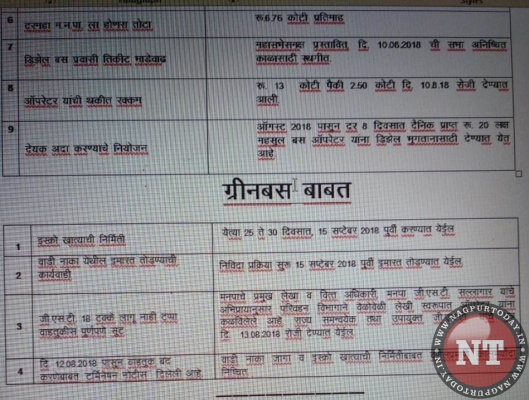 6 दरमहा म.न.पा. ला होणारा तोटा रू.6.76 कोटी प्रतिमाह
7 डिझेल बस प्रवासी तिकीट भाडेवाढ महासभेसमक्ष प्रस्तावित, दि. 10.08.2018 ची सभा अनिश्चित
काळासाठी स्थगीत.
8 ऑपरेटर यांची थकीत रक्कम रू. 13 कोटी पैकी 2.50 कोटी दि. 10.8.18 रोजी देण्यात
आली.
9 देयक अदा करण्याचे नियोजन ऑगस्ट 2018 पासुन दर 8 दिवसात दैनिक प्राप्त रू. 20 लक्ष
महसुल बस ऑपरेटर यांना डिझेल भुगतानासाठी देण्यात येत
आहे.
ग्रीनबस बाबत
1 इस्क्रो खात्याची निर्मिती येत्या 25 ते 30 दिवसात, 15 सप्टेंबर 2018 पुर्वी करण्यात येईल
2 वाडी नाका येथील इमारत तोडण्याची निविदा प्रक्रिया सुरू 15 सप्टेंबर 2018 पुर्वी इमारत तोडण्यात येईल
कार्यवाही
मनपाचे प्रमुख लेखा व वित्त अधिकारी, मनपा जी.एस.टी. सल्लागार यांचे
3 जी.एस.टी. 18 टक्के लागू नाही टप्पा अभिप्रायानुसार परिवहन विभागाने वेळोवेळी लेखी स्वरूपात
वाहतुकीस पुर्णपणे सुट कळविलेले आहे. राज्य समन्वयक तथा उपायुक्त
दि. 13.08.2018 रोजी देण्यात येईल
4 दि. 12.08.2018 पासुन वाहतुक बंद वाडी नाका जागा व इस्क्रो खात्याची निर्मितीबाबत
करणेबाबत टर्मिनेषन नोटीस दिलेली आहे निश्चित
WWW.NAGPURTODAY.IN
NT